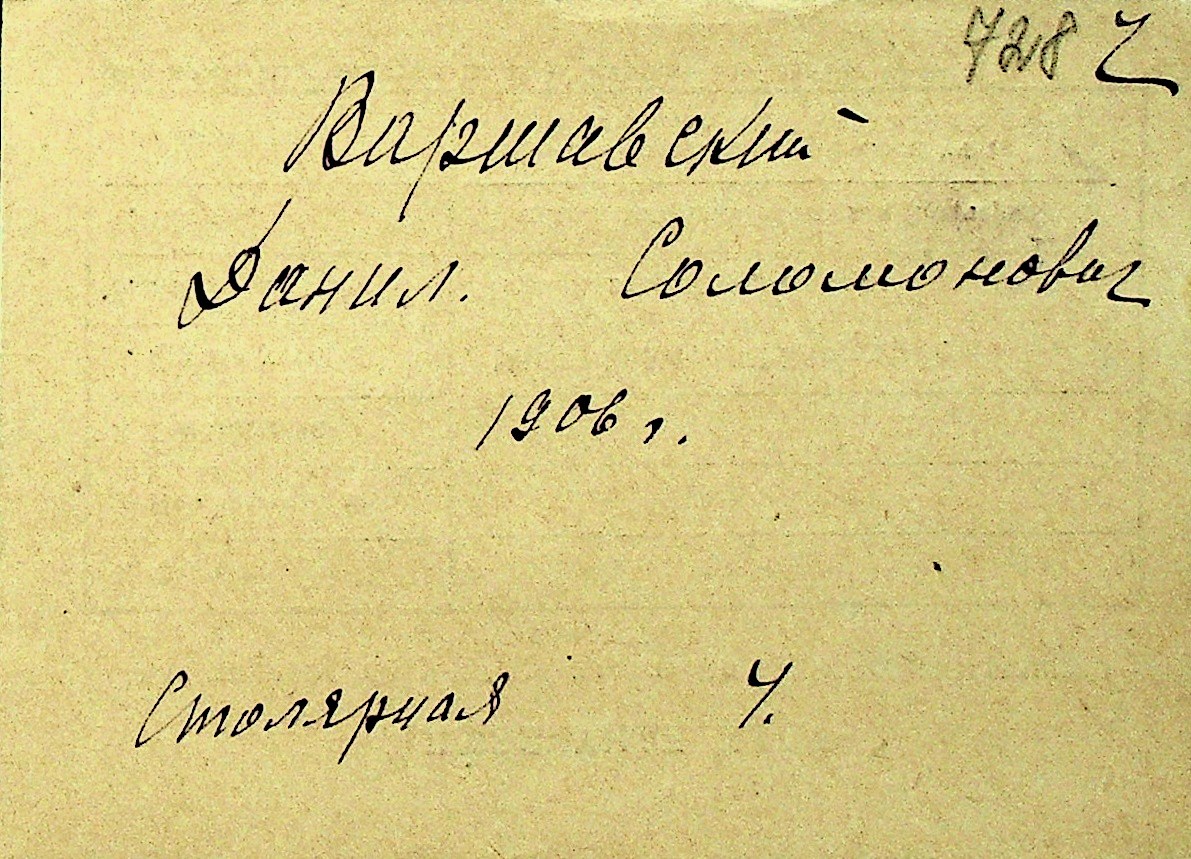 728 ч
Варшавский
Данил. Соломонович
1906 г.
Столярная 4.